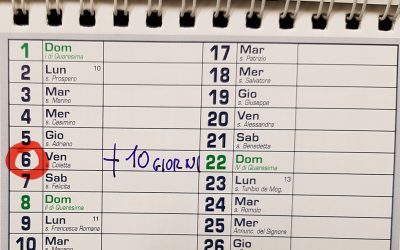 1 Dom
I di Quaresima
2 Lun 10
s. Prospero
3 Mar
s. Marino
4 Mer
s. Casimiro
5 Gio
s. Adriano
6 Ven + 10 GIORNI
s. Coletta
7 Sab
s. Felicita
8 Dom
II di Quaresima
9 Lun 11
s. Francesca Romana
10 Mar
17 Mar
s. Patrizio
18 Mer
s. Salvatore
19 Gio
s. Giuseppe
20 Ven
s. Alessandra
21 Sab
s. Benedetta
22 Dom
IV di Quaresima
23 Lun 13
s. Turibio de Mog.
24 Mar
s. Romolo
25 Mer
Annunc. del Signore
26 Gio